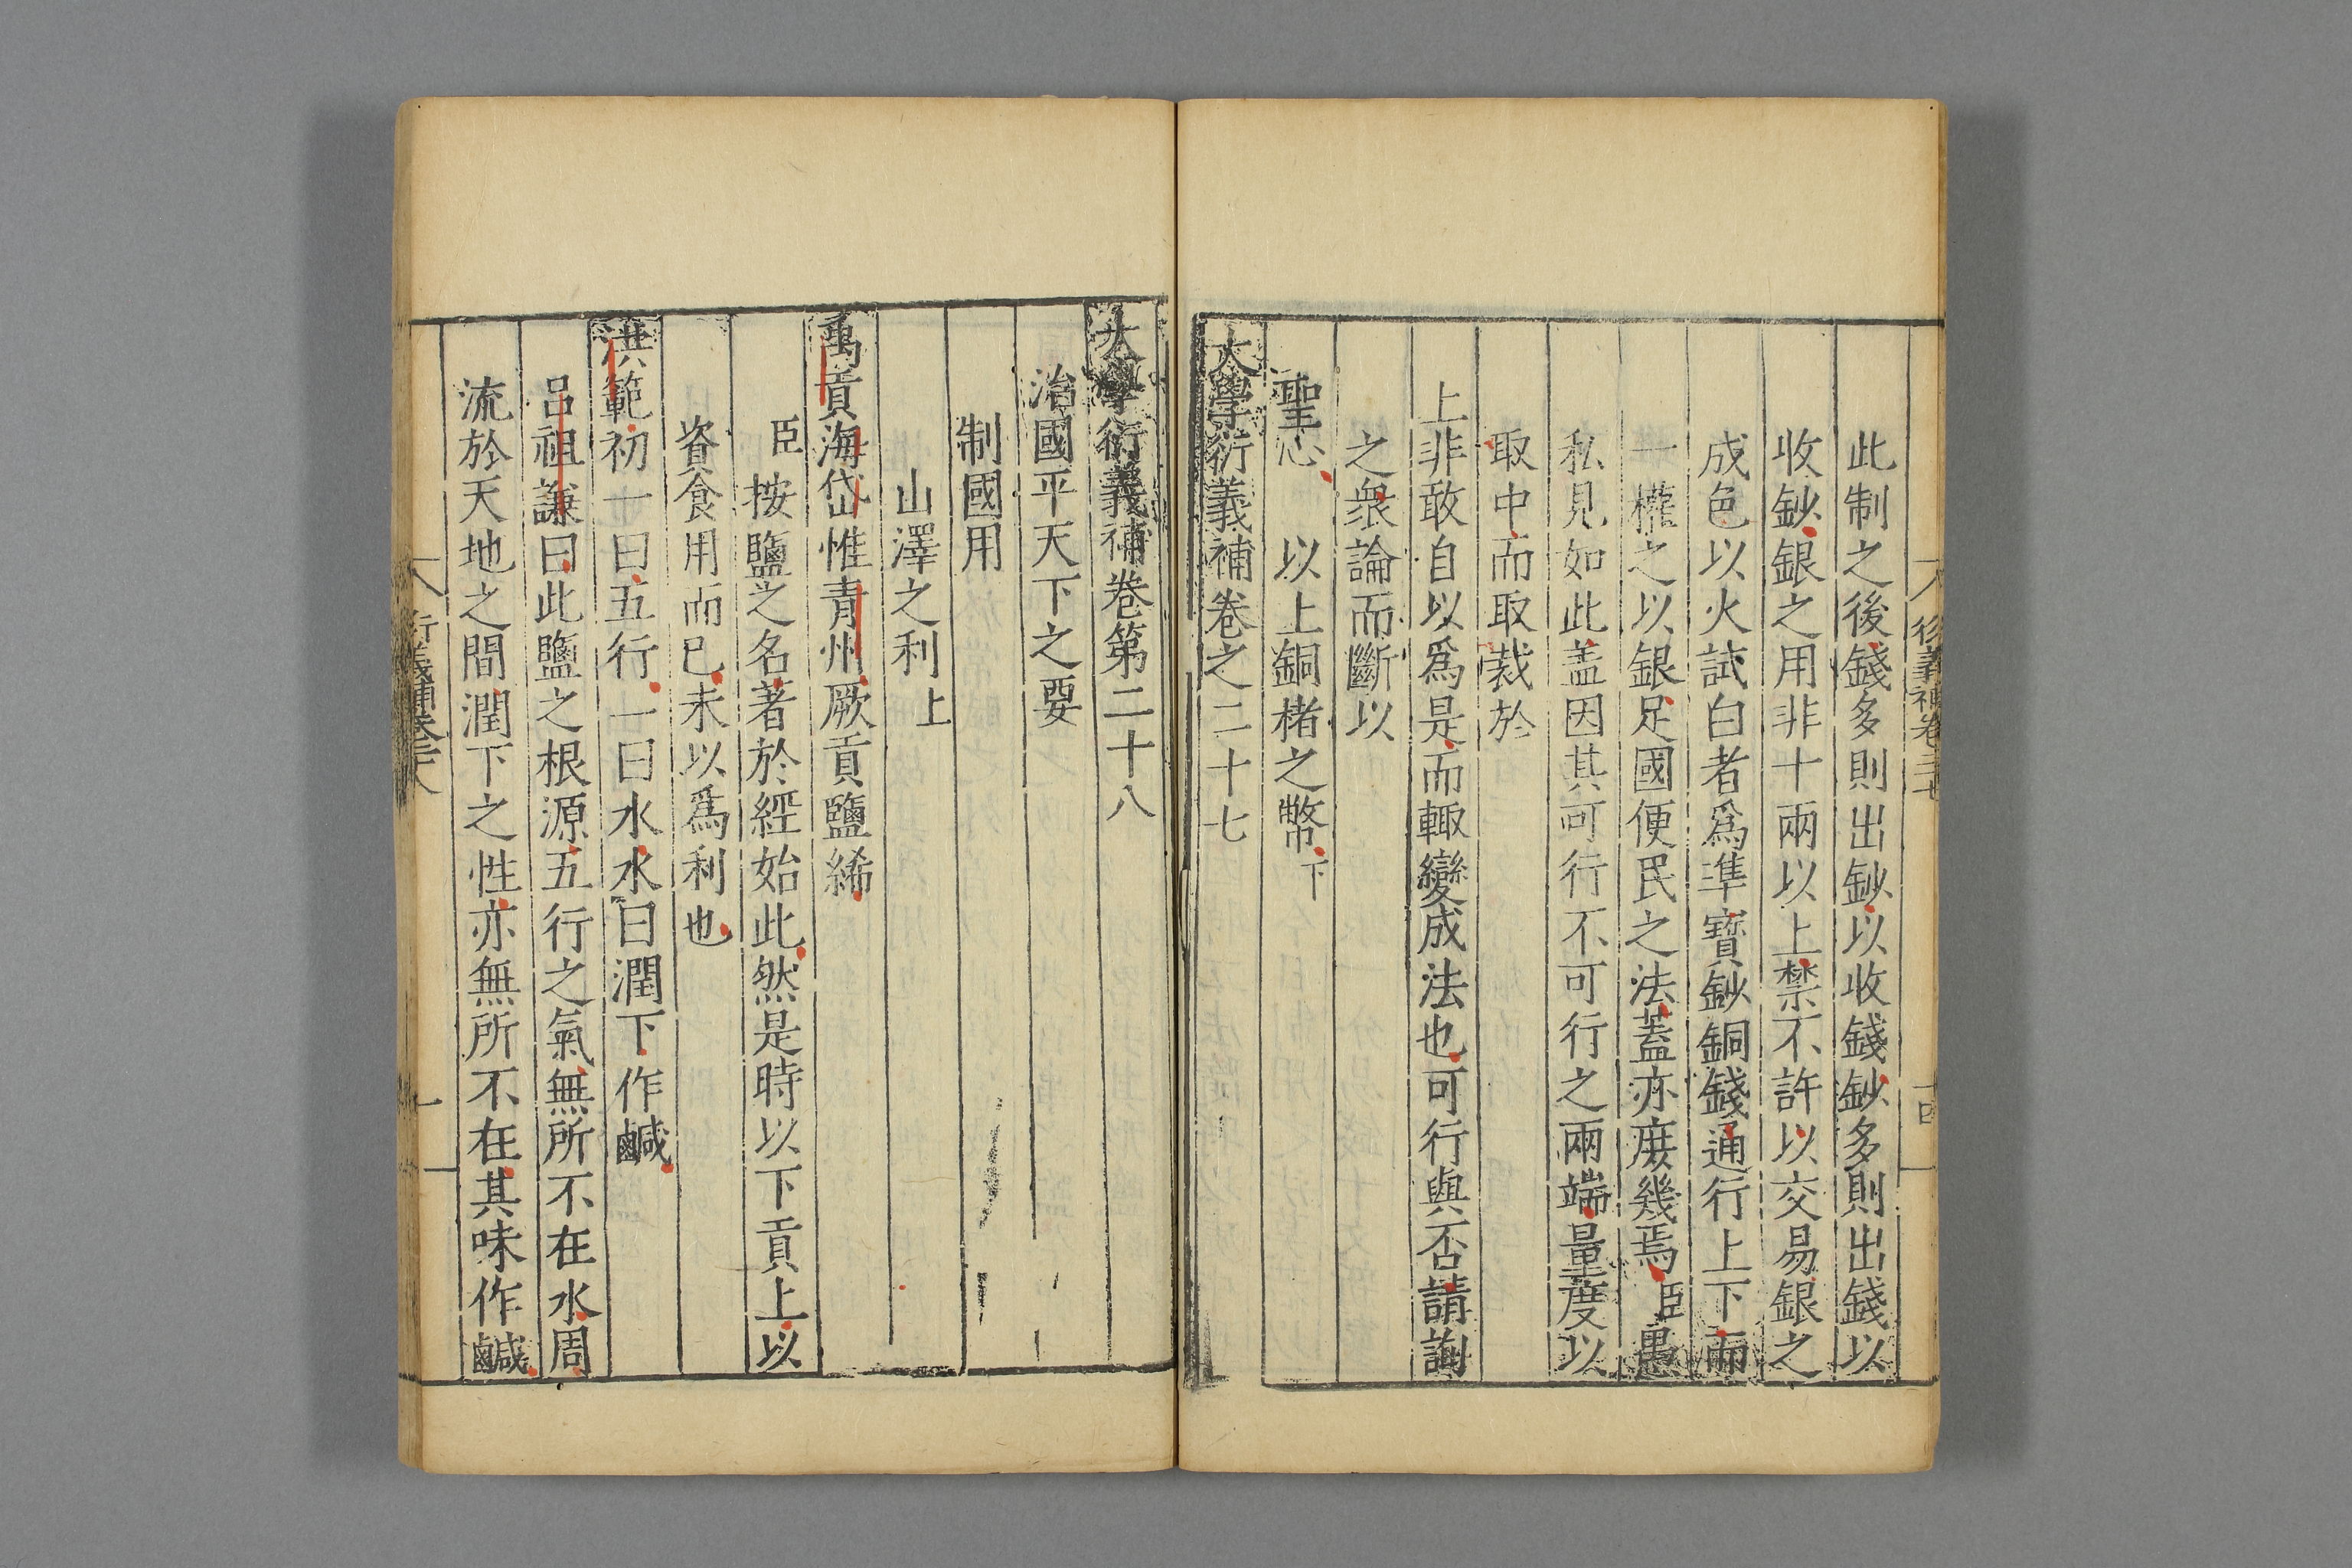 此制之後錢多則出鈔以收錢鈔多則出錢以
收鈔銀之用非十兩以上禁不許以交易銀之
成色以火試白者爲準寳鈔銅錢通行上下而
一權之以銀足國便民之法蓋亦庻幾焉臣愚
私見如此盖因其可行不可行之兩端量度以
取中而取裁於
上非敢自以爲是而輙變成法也可行與否請詢
之衆論而斷以
聖心 以上銅楮之幣下
大學衍義補卷之二十七
大學衍義補卷第二十八
治國平天下之要
制國用
山澤之利上
禹貢海岱惟青州厥貢鹽絺
臣按鹽之名著於經始此然是時以下貢上以
資食用而已未以爲利也
洪範初一曰五行一曰水水曰潤下潤下作鹹
吕祖謙曰此鹽之根源五行之氣無所不在水周
流於天地之間潤下之性亦無所不在其味作鹹